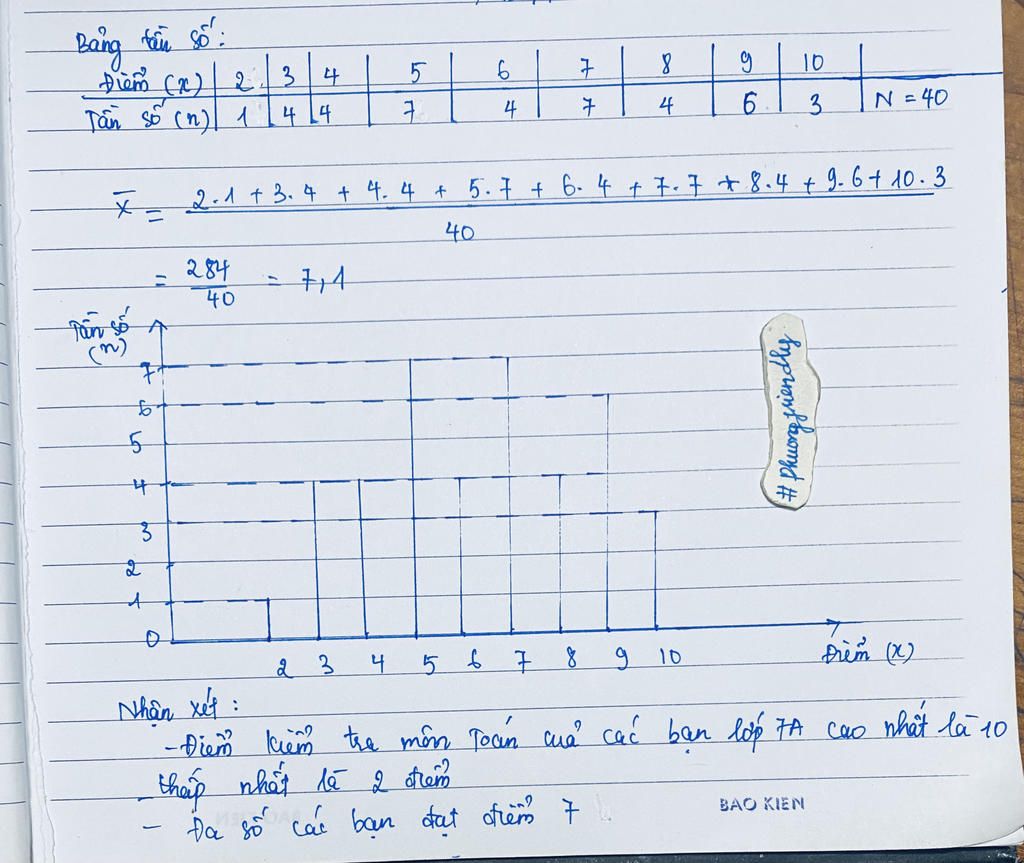 Bảng tần số:
Điểm (x) 2 3 4 5 6 7 8 9 10
Tần số (n) 1 4 4 7 4 7 4 6 3 N = 40
x̄ = 2.1 + 3.4 + 4.4 + 5.7 + 6.4 + 7.7 + 8.4 + 9.6 + 10.3
40
= 284/40 = 7,1
Tần số
(n)
7
6
5
4
3
2
1
0
2 3 4 5 6 7 8 9 10 Điểm (x)
#phuongfriendfly
Nhận xét:
- Điểm kiểm tra môn Toán cuả các bạn lớp 7A cao nhất là 10
- thấp nhất là 2 điểm
- Đa số các bạn đạt điểm 7
BAO KIEN